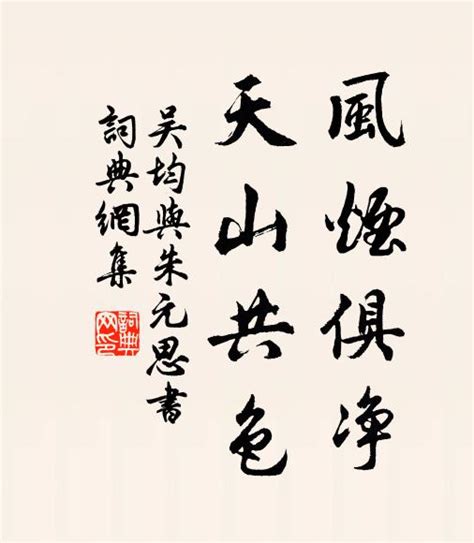 風煙俱净
天山共色
吴均與朱元思書
詞典網集
詞典
网印